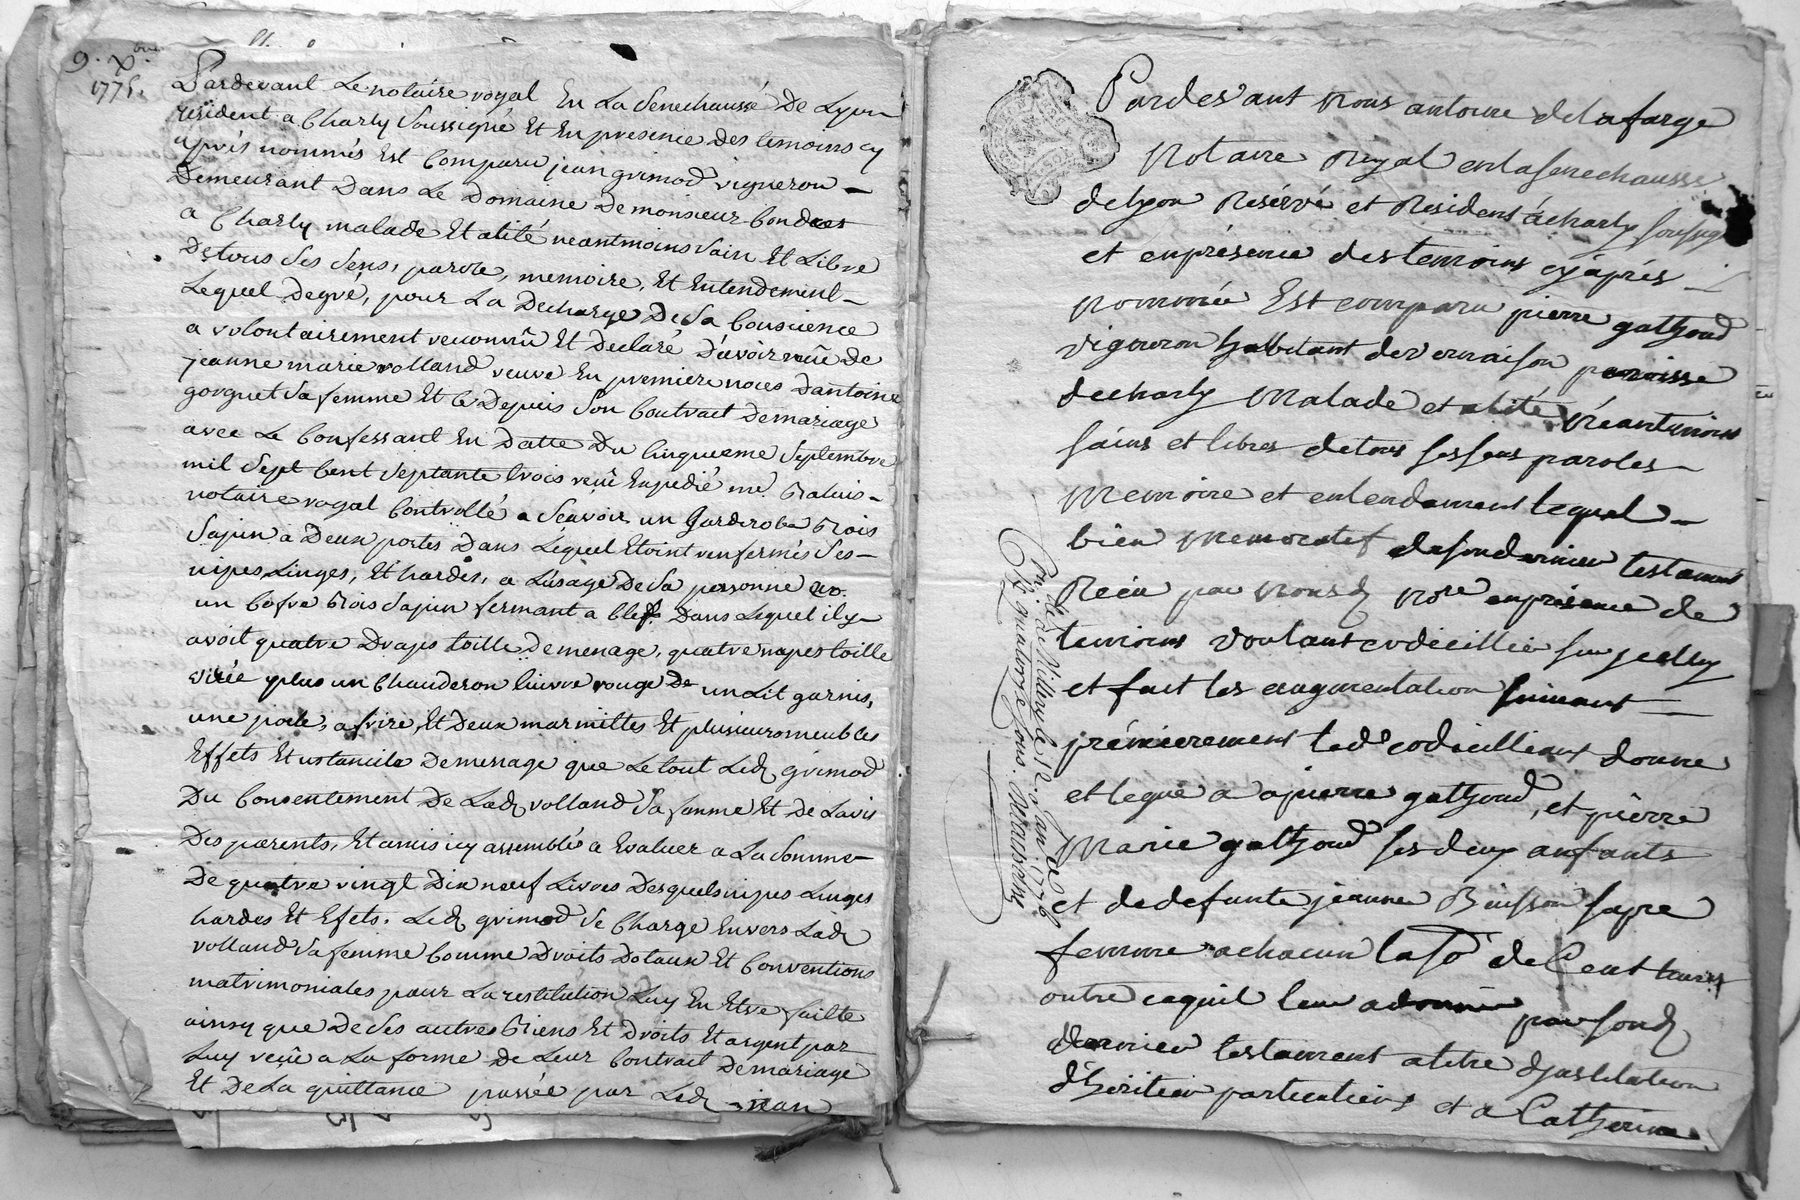 9. Xbre.
1775.
Pardevant Le notaire royal En La Senechaussé De Lyon
résident a Charly Soussigné Et En presence Des temoins cy
aprés nommés Est Comparu jean grimod vigneron
Demeurant Dans Le Domaine De monsieur
a Charly malade Et alité neantmoins Sain Et Libre
De tous Ses Sens, parole, memoire, Et Entendement
Lequel Degré, pour La Decharge De Sa Conscience
a volontairement reconnû Et Declaré D'avoir reçûe De
jeanne marie volland veuve En premiere noces Dantoine
gorguet Sa femme Et Ce Depuis Son Contract De mariage
avec Le Confessant En Datte Du Cinquieme Septembre
mil Sept Cent Septante trois reçû Expedié me.
notaire royal Controllé a Scavoir un Garderobe Bois
Sapin a Deux portes Dans Lequel Etoint renfermés Ses
nipes Linges, Et hardes, a L'usage De Sa personne
un Cofre Bois Sapin fermant a Clef Dans Lequel il y
avoit quatre Draps toille De menage, quatre napes toille
plus un Chauderon Cuivre rouge un Lit garnis,
une poele, a frire, Et Deux marmittes Et plusieurs meubles
Effets Et ustancile De menage que Le tout Led. grimod
Du Consentement De Lad. volland Sa femme Et De Lavis
Des parents, Et amis icy assemblés a Evaluer a La Somme
De quatre vingt Dix neuf Livres Desquels nipes Linges
hardes Et Efets. Led. grimod Se Charge Envers Lad.
volland Sa femme Comme Droits Dotaux Et Conventions
matrimoniales pour La restitution Luy En Etre faitte
ainsy que De Ses autres Biens Et Droits Et argent par
Luy reçû a La forme De Leur Contract De mariage
Et De La quittance passée par Led. jean
Pardevant Nous antoine delafarge
Notaire Royal en la senechaussé
de Lyon Resérvé et Resident à charly soussigné
et en présence des temoins cy après
Nommée Est comparu pierre gathoud
vigneron habitant de vernaison paroisse
de charly Malade et alité Néantmoins
sains et libres de tous ses sens paroles
Memoire et entendement lequel
bien Memoratif de son dernier testament
Récu par Nousd. Nore en présence de
temoins voulant codicillier sur jcelluy
et fait les augmentation suivant
prémierement led. codicilliant donne
et legue a pierre gathoud, et pierre
Marie gathoud ses deux anfants
et de defunte jeanne Buisson sa pre
femme a chacun la so. de Cent livres
outre ce quil leur a donné par sond.
dernier testament a titre djnstitution
d'heritier particuliers et a Catherine